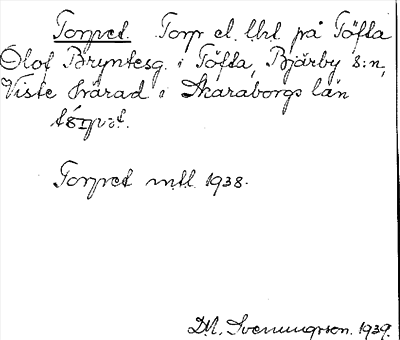 Torpet. Torp el. lht på Töfta
Olof Bryntesg. i Töfta, Bjärby s:n,
Viste härad i Skaraborgs län
Torpet mtl. 1938.
D.A. Svenungsson. 1939.